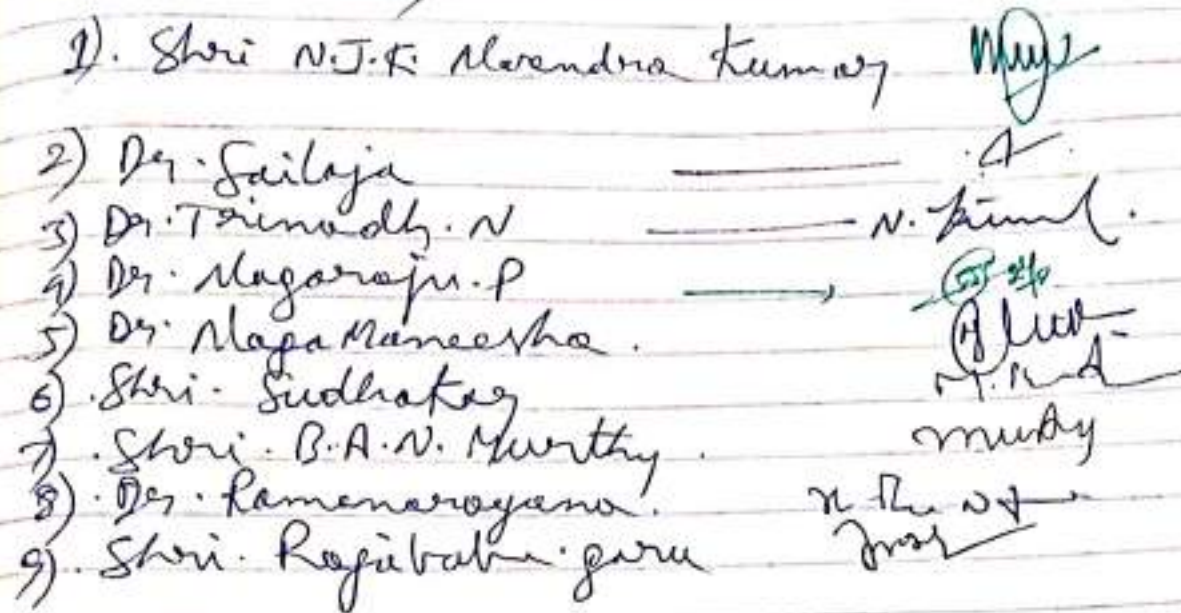 1). Shri N.J.K. Narendra Kumar
2) Dr. Sailaja
3) Dr. Trinadh. N N.
4) Dr. Nagaraju. P
5) Dr. Naga Maneesha.
6). Shri. Sudhakar
7). Shri. B.A.N. Murthy. Murthy
8). Dr. Ramanarayana.
9). Shri. Rajubabu garu